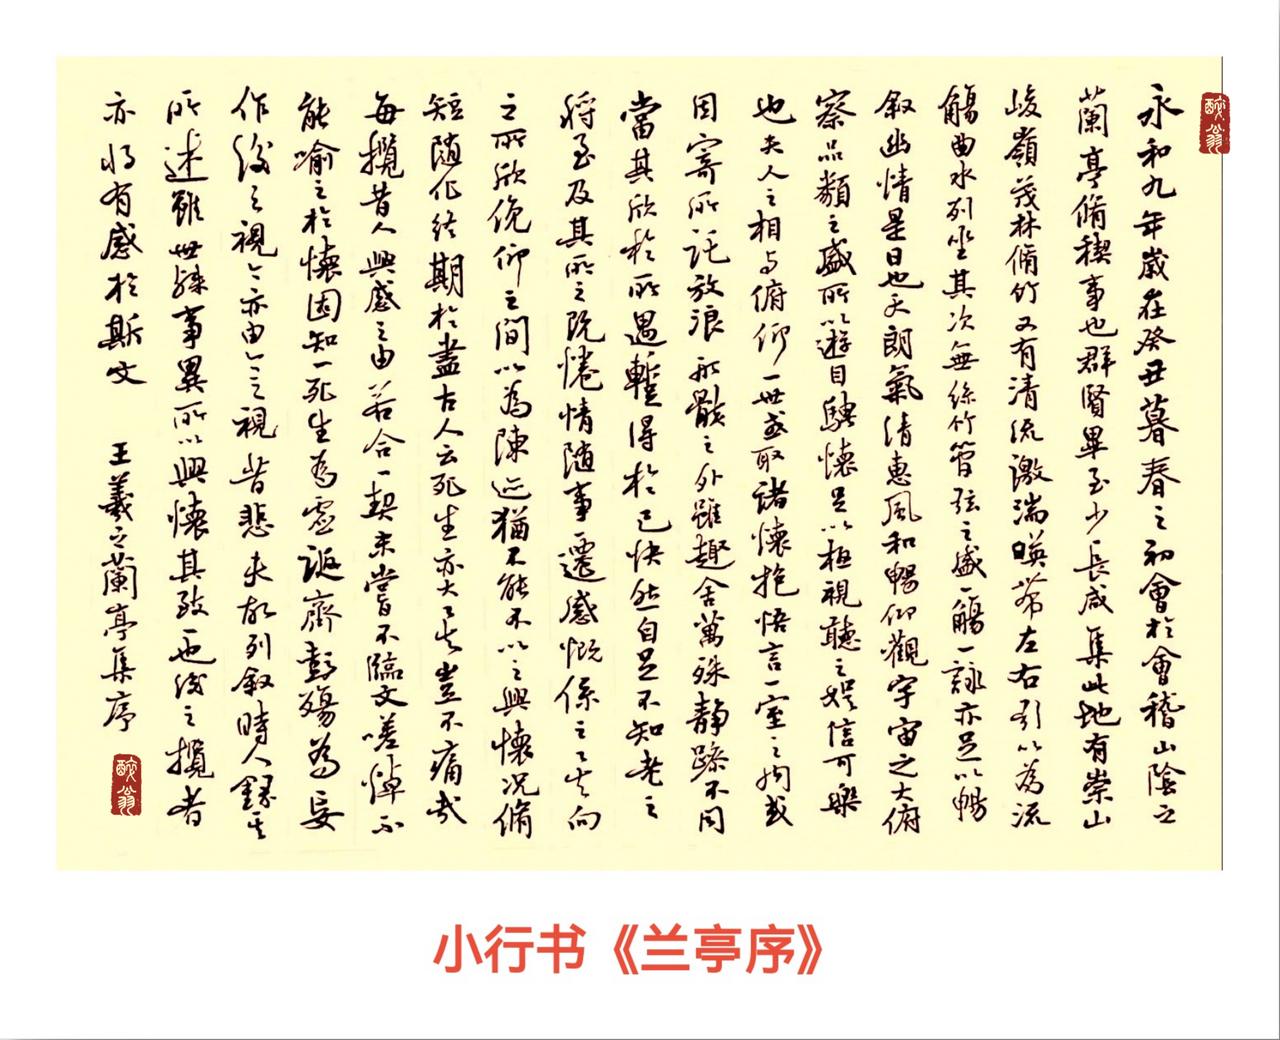 永和九年歲在癸丑暮春之初會於會稽山陰之
蘭亭脩稧事也群賢畢至少長咸集此地有崇山
峻嶺茂林脩竹又有清流激湍暎帶左右引以為流
觴曲水列坐其次無絲竹管弦之盛一觴一詠亦足以暢
敘幽情是日也天朗氣清惠風和暢仰觀宇宙之大俯
察品類之盛所以遊目騁懷足以極視聽之娛信可樂
也夫人之相与俯仰一世或取諸懷抱悟言一室之內或
因寄所託放浪形骸之外雖趣舍萬殊靜躁不同
當其欣於所遇暫得於己快然自足不知老之
將至及其所之既惓情隨事遷感慨係之矣向
之所欣俛仰之間以為陳迹猶不能不以之興懷況脩
短隨化終期於盡古人云死生亦大矣豈不痛哉
每攬昔人興感之由若合一契未嘗不臨文嗟悼不
能喻之於懷固知一死生為虛誕齊彭殤為妄
作後之視今亦由今之視昔悲夫故列敘時人錄其
所述雖世殊事異所以興懷其致一也後之攬者
亦將有感於斯文 王羲之蘭亭集序
醉翁
醉翁
小行书《兰亭序》